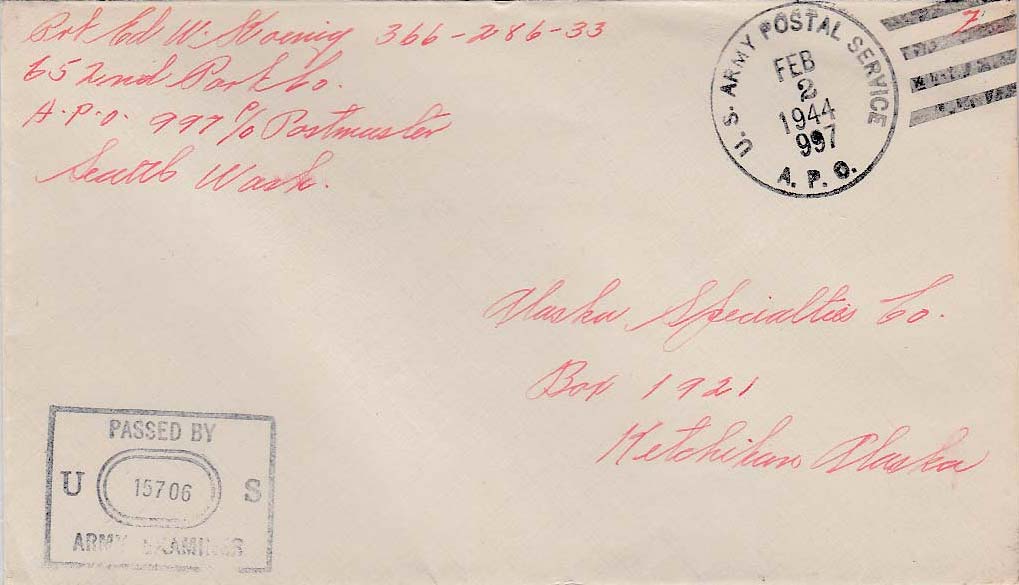 Pvt Ed W. Koenig 366-286-33
652nd Port Co.
A.P.O. 997 c/o Postmaster
Seattle Wash.
U.S. ARMY POSTAL SERVICE
FEB
2
1944
997
A. P. O.
Alaska Specialties Co.
Box 1921
Ketchikan Alaska
PASSED BY
U 15706 S
ARMY EXAMINER